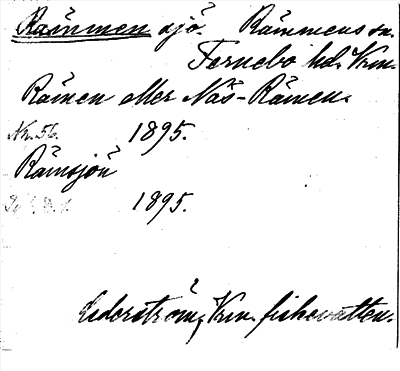 Rämmen sjö. Rämmens sn.
Fernebo hd. Vrm.
Rämen eller Näs-Rämen.
Nr. 56. 1895.
Rämsjön
1895.
Cederström, Vrm. fiskevatten.